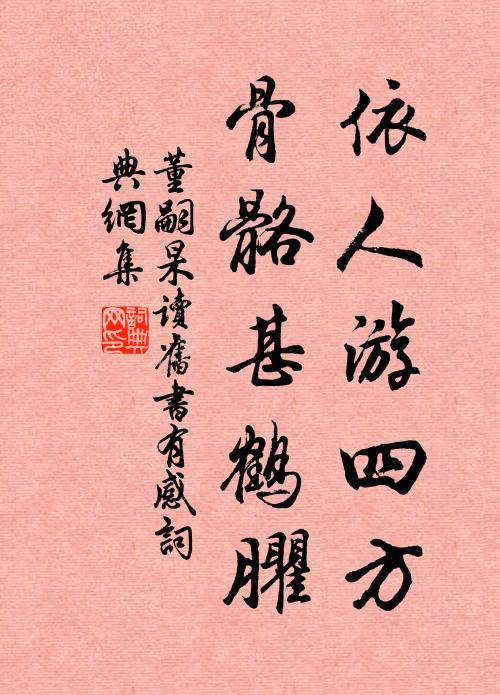 依人游四方
骨骼甚鶴臞
董嗣杲讀舊書有感詞
典網集
詞典網印